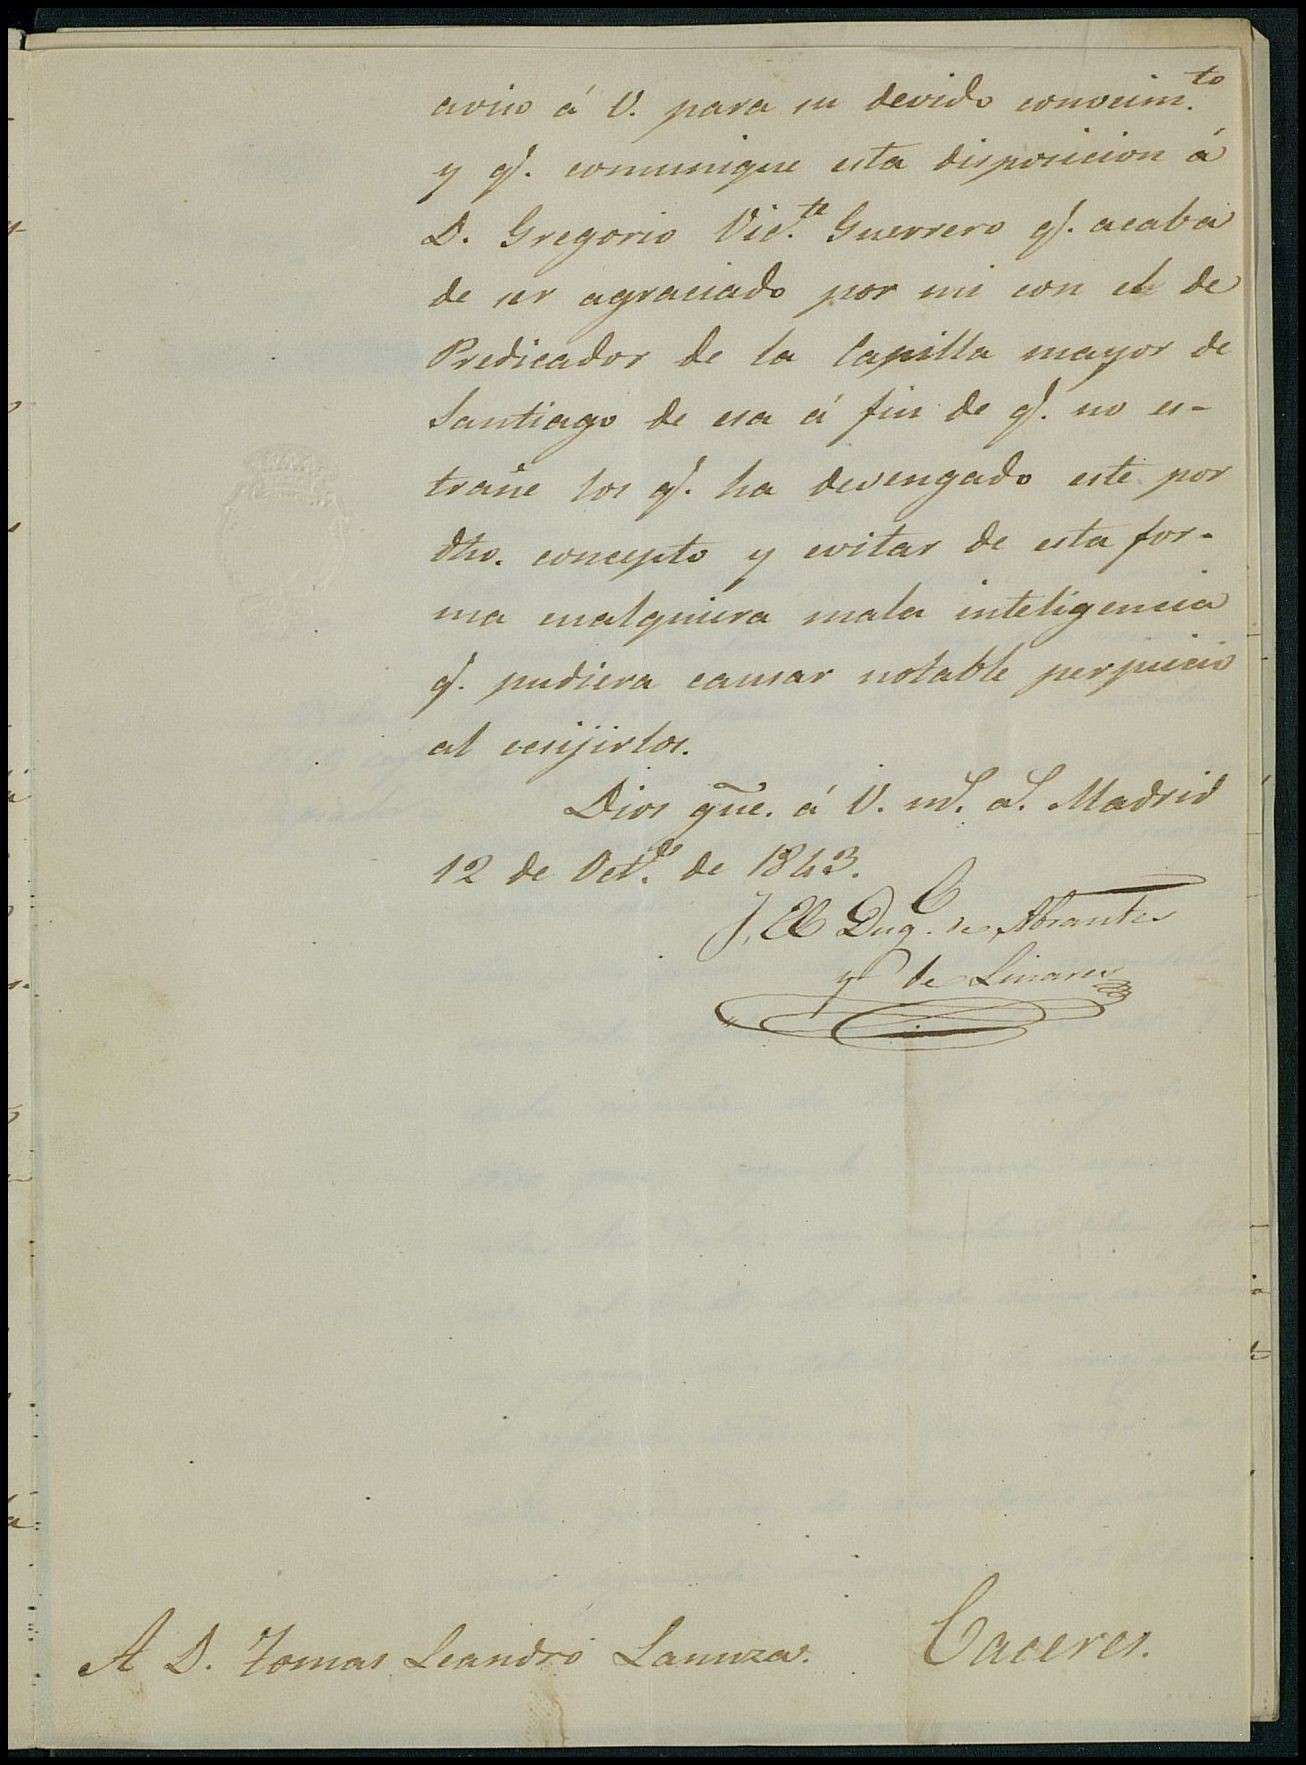 aviso á V. para su devido conocim.to
y q.e comunique esta disposicion á
D. Gregorio Vic.te Guerrero q.e acaba
de ser agraciado por mi con el de
Predicador de la Capilla mayor de
Santiago de esa á fin de q.e no es-
trañe los q.e ha devengado este por
dho. concepto y evitar de esta for-
ma cualquiera mala inteligencia
q.e pudiera causar notable perjuicio
al exijirlos.
Dios gue. á V. m.s a.s Madrid
12 de Oct.e de 1843.
El Duq. de Abrantes
y de Linares
A D. Tomas Leandro Lanuza. Caceres.